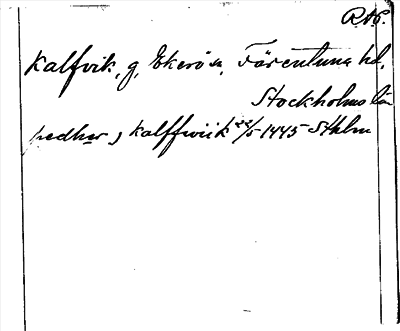 RAp.
Kalfvik, g, Ekerö sn, Färentuna hd,
Stockholms län
pedher j kalffwiik 22/5 1445 Sthlm